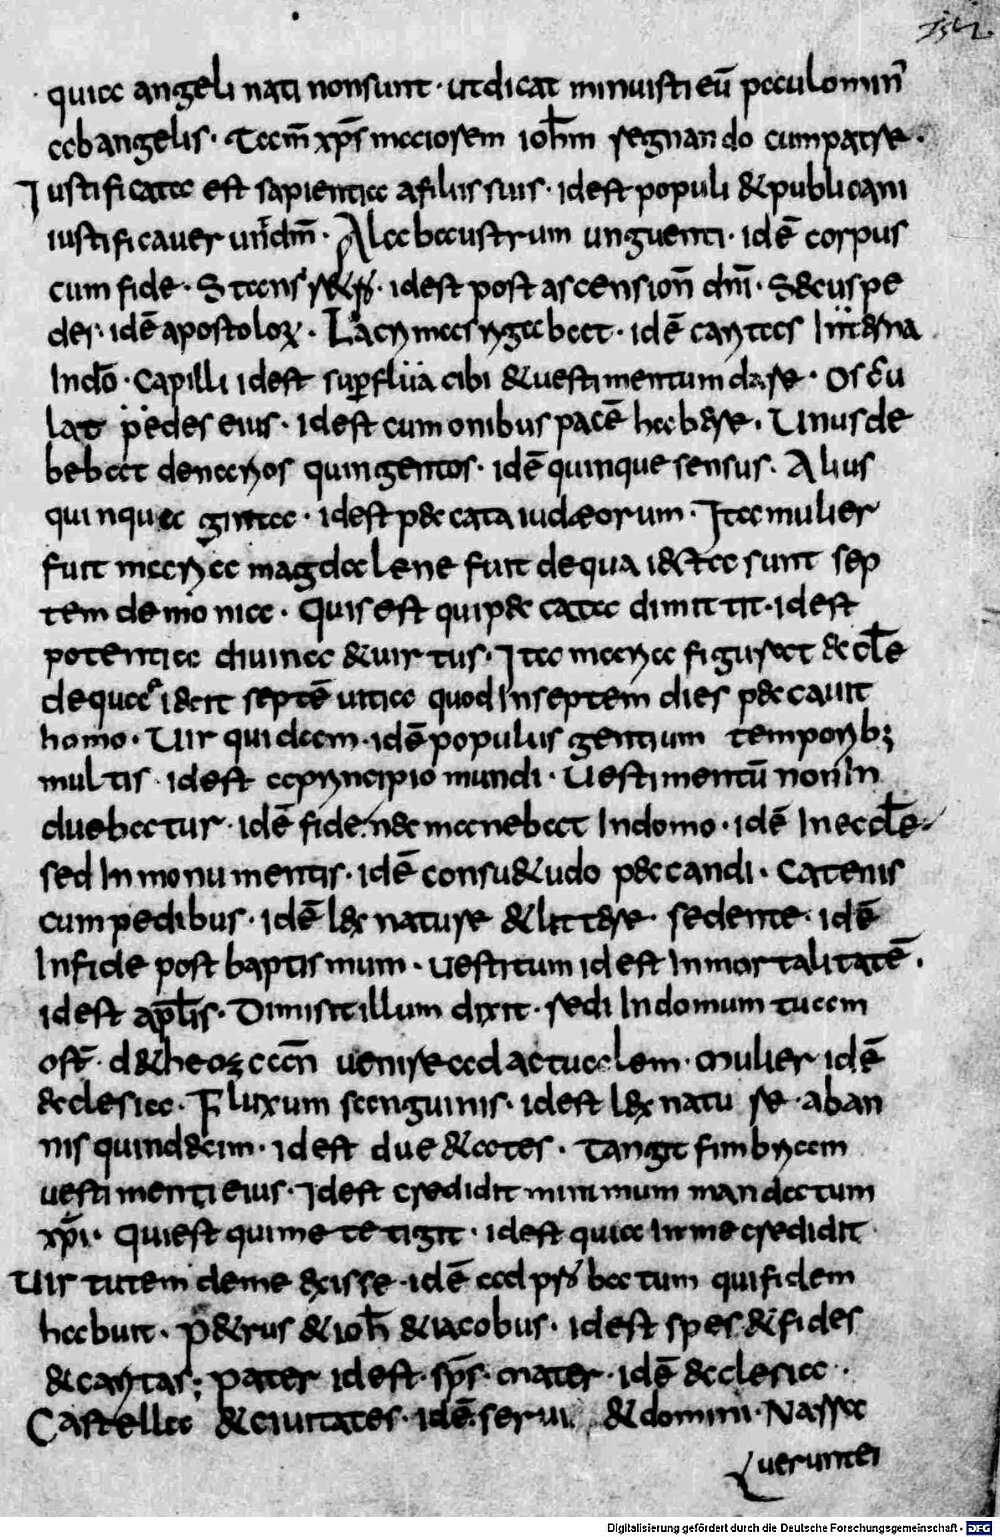 quia angeli nati non sunt · ut dicat minuisti eū paulo minꝰ
ab angelis · Tam̄ xp̄s maiorem ioh̄m regnando cum patre ·
Iustificata est sapientia a filiis suis · id est populi & publicani
iustificauer
cum fide · Stans · id est post ascension̄ dn̄i · Secus pe
des · idē apostoloꝝ · Lacrymas rigabat · idē carytas
In dō · Capilli id est suꝑflua cibi & uestimentum dare · Oscu
lat pedes eius · id est cum omibus pacē habere · Unus de
bebat denaryos quingentos · idē quinque sensus · Alius
quinquaginta · id est peccata iudæorum · Ita mulier
fuit marya magdalene fuit de qua iecta sunt sep
tem demonia · Quis est qui peccata dimittit · id est
potentia diuina & uirtus · Ita marya figurat eccl̄e
de qua iecit septē uitia quod In septem dies peccauit
homo · Uir qui · idē populus gentium temporybꝫ
multis · id est a pryncipio mundi · Uestimentū non In
duebatur · idē fide · nec manebat In domo · idē In eccl̄e ·
sed In monumentis · idē consuetudo peccandi · Catenis
cum pedibus · idē lex nature & littere · sedente · idē
In fide post baptismum · uestitum id est Inmortalitatē ·
id est apl̄is · Dimisit illum dixit · redi In domum tuam
· mulier idē
ecclesia · Fluxum sanguinis · id est lex nature · ab an
nis quindecim · id est due etates · Tangit fimbryam
uestimenti eius · Id est credidit minimum mandatum
xp̄i · Qui est qui me tetigit · id est quia In me credidit
Uirtutem de me exisse · idē ad probatum qui fidem
habuit · P&rus & ioh̄ & iacobus · id est spes & fides
& carytas · pater id est · sp̄s · mater · idē ecclesia ·
Castella & ciuitates · idē · serui & domini · Nassa